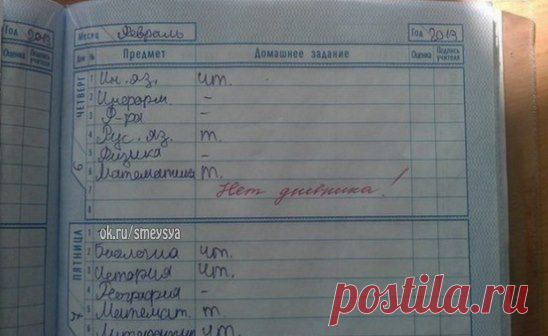 Год 2013 Месяц Февраль Год 2013
Оценка Подпись учителя Дни № Предмет Домашнее задание Оценка Подпись учителя
ЧЕТВЕРГ
1 Ин. яз. чт.
2 Информ. -
3 Ф-ра -
4 Рус. яз. т.
5 Физика -
6 6 Математика т.
7 Нет дневника!
8
ok.ru/smeysya
ПЯТНИЦА
1
2 Биология чт.
3 История чт.
4 География -
5 Математ. т.
6 Литература чт.
postila.ru